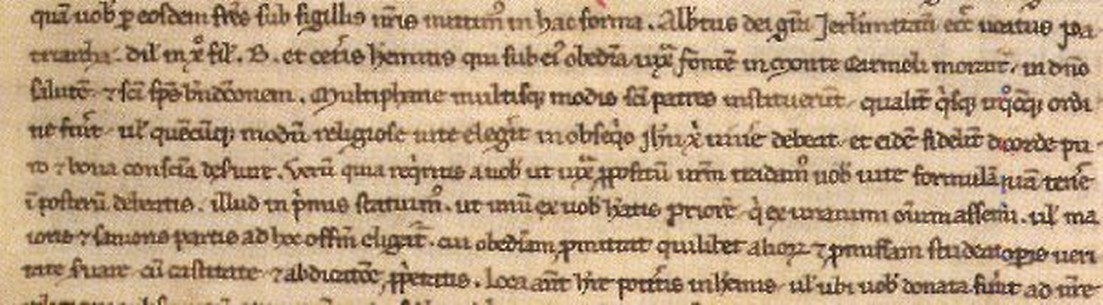 quā uob̄ p eosdem fr̄es sub sigillis nr̄is mittim⁹ in hac forma. Alb̄tus dei gr̄a Jerl̄imitan̄ ecc̄ uocatus pa-
triarcha. dil̄ in xp̄o fil̄. B. et cet̄is h̄emitis qui sub ei⁹ obedīa iux̄ fontē in monte Carmeli morant̄. in dn̄o
salutē. ⁊ sc̄i sp̄c bn̄dc̄onem. Multipharie multisq; modis sc̄i patres instituerūt. qualit̄ q̄sq; in q̄cūq; ordi-
ne fuit̄. ul̄ quēcūq; modū religiose uite elegit̄ in obseq̄o ih̄u xp̄i uiue᷑ debeat. et eidē fidelit̄ de corde pu-
ro ⁊ bona consc̄ia deseruire. Verū quia req̄ritis a nob̄ ut iux̄ ꝓpositū ur̄m tradam⁹ uob̄ uite formulā quā tene᷑
ī posterū debeatis. illud in p̄mis statuim⁹. ut unū ex uob̄ h̄eatis priorē. q̄ ex unanimi oīum assensu. ul̄ ma-
ioris ⁊ sanioris partis ad hoc offīm eligat̄. cui obedīam ꝓmittat quilibet alioꝝ. ⁊ ꝓmissam studeat opis ueri-
tate s̄uare. cū castitate ⁊ abdicatōe ꝓp̄etatis. Loca aut̄ h̄re pot̄itis in h̄emis. ul̄ ubi uob̄ donata fūint ad ur̄e